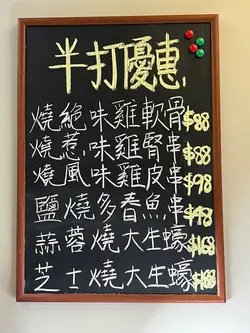 半打優惠
燒絕味雞軟骨$88
燒惹味雞腎串$88
燒風味雞皮串$98
鹽燒多春魚串$48
蒜蓉燒大生蠔$168
芝士燒大生蠔$168